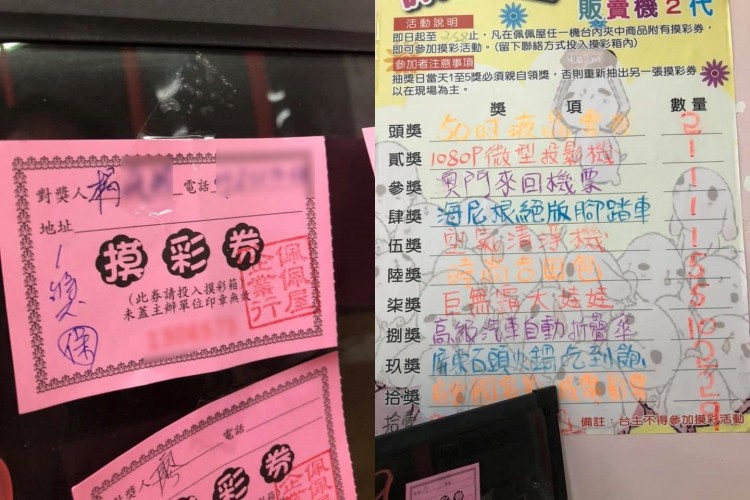 對獎人 楊 電話
地址
1獎
保
摸彩券
(此券請投入摸彩箱
未蓋主辦單位印章無效
佩佩屋
企業行
電話
摸彩券
佩佩屋
販賣機2代
活動說明
即日起至 止,凡在佩佩屋任一機台內夾中商品附有摸彩券,
即可參加摸彩活動。(留下聯絡方式投入摸彩箱內)
參加者注意事項
抽獎日當天1至5獎必須親自領獎,否則重新抽出另一張摸彩券
以在現場為主。
獎項 數量
頭獎 50吋液晶 2
貳獎 1080P微型投影機 1
參獎 澳門來回機票 1
肆獎 海尼根絕版腳踏車 1
伍獎 空氣清淨機 1
陸獎 時尚 包 5
柒獎 巨無霸大娃娃 5
捌獎 高級汽車自動折疊傘 10
玖獎 屏東石頭火鍋吃到飽
拾獎
拾壹
備註:台主不得參加摸彩活動